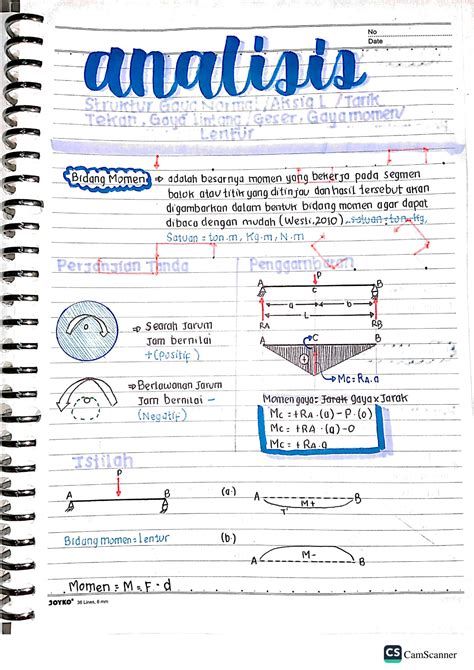 No
Date
analisis
Struktur Gaya Normal/Aksial/Tarik
Tekan, Gaya lintang/Geser, Gaya momen/
Lentur
Bidang Momen ⇒ adalah besarnya momen yang bekerja pada segmen
balok atau titik yang ditinjau dan hasil tersebut akan
digambarkan dalam bentuk bidang momen agar dapat
dibaca dengan mudah (Wesli, 2010) satuan: ton-kg,
Satuan = ton.m, Kg.m, N.m
Perjanjian Tanda
Penggambaran
P
A C B
a b
L
RA RB
⇒ Searah Jarum
Jam bernilai
+ (Positif)
A C B
+
Mc = RA.a
⇒ Berlawanan Jarum
Jam bernilai -
(Negatif)
Momen gaya: Jarak gaya x Jarak
Mc = +RA.(a)-P.(0)
Mc = +RA.(a)-0
Mc = +RA.a
Istilah
P
A B
(a.) A M+ B
Bidang momen = lentur
(b.)
A M- B
Momen = M = F.d
JOYKO 36 Lines, 8 mm
CS CamScanner